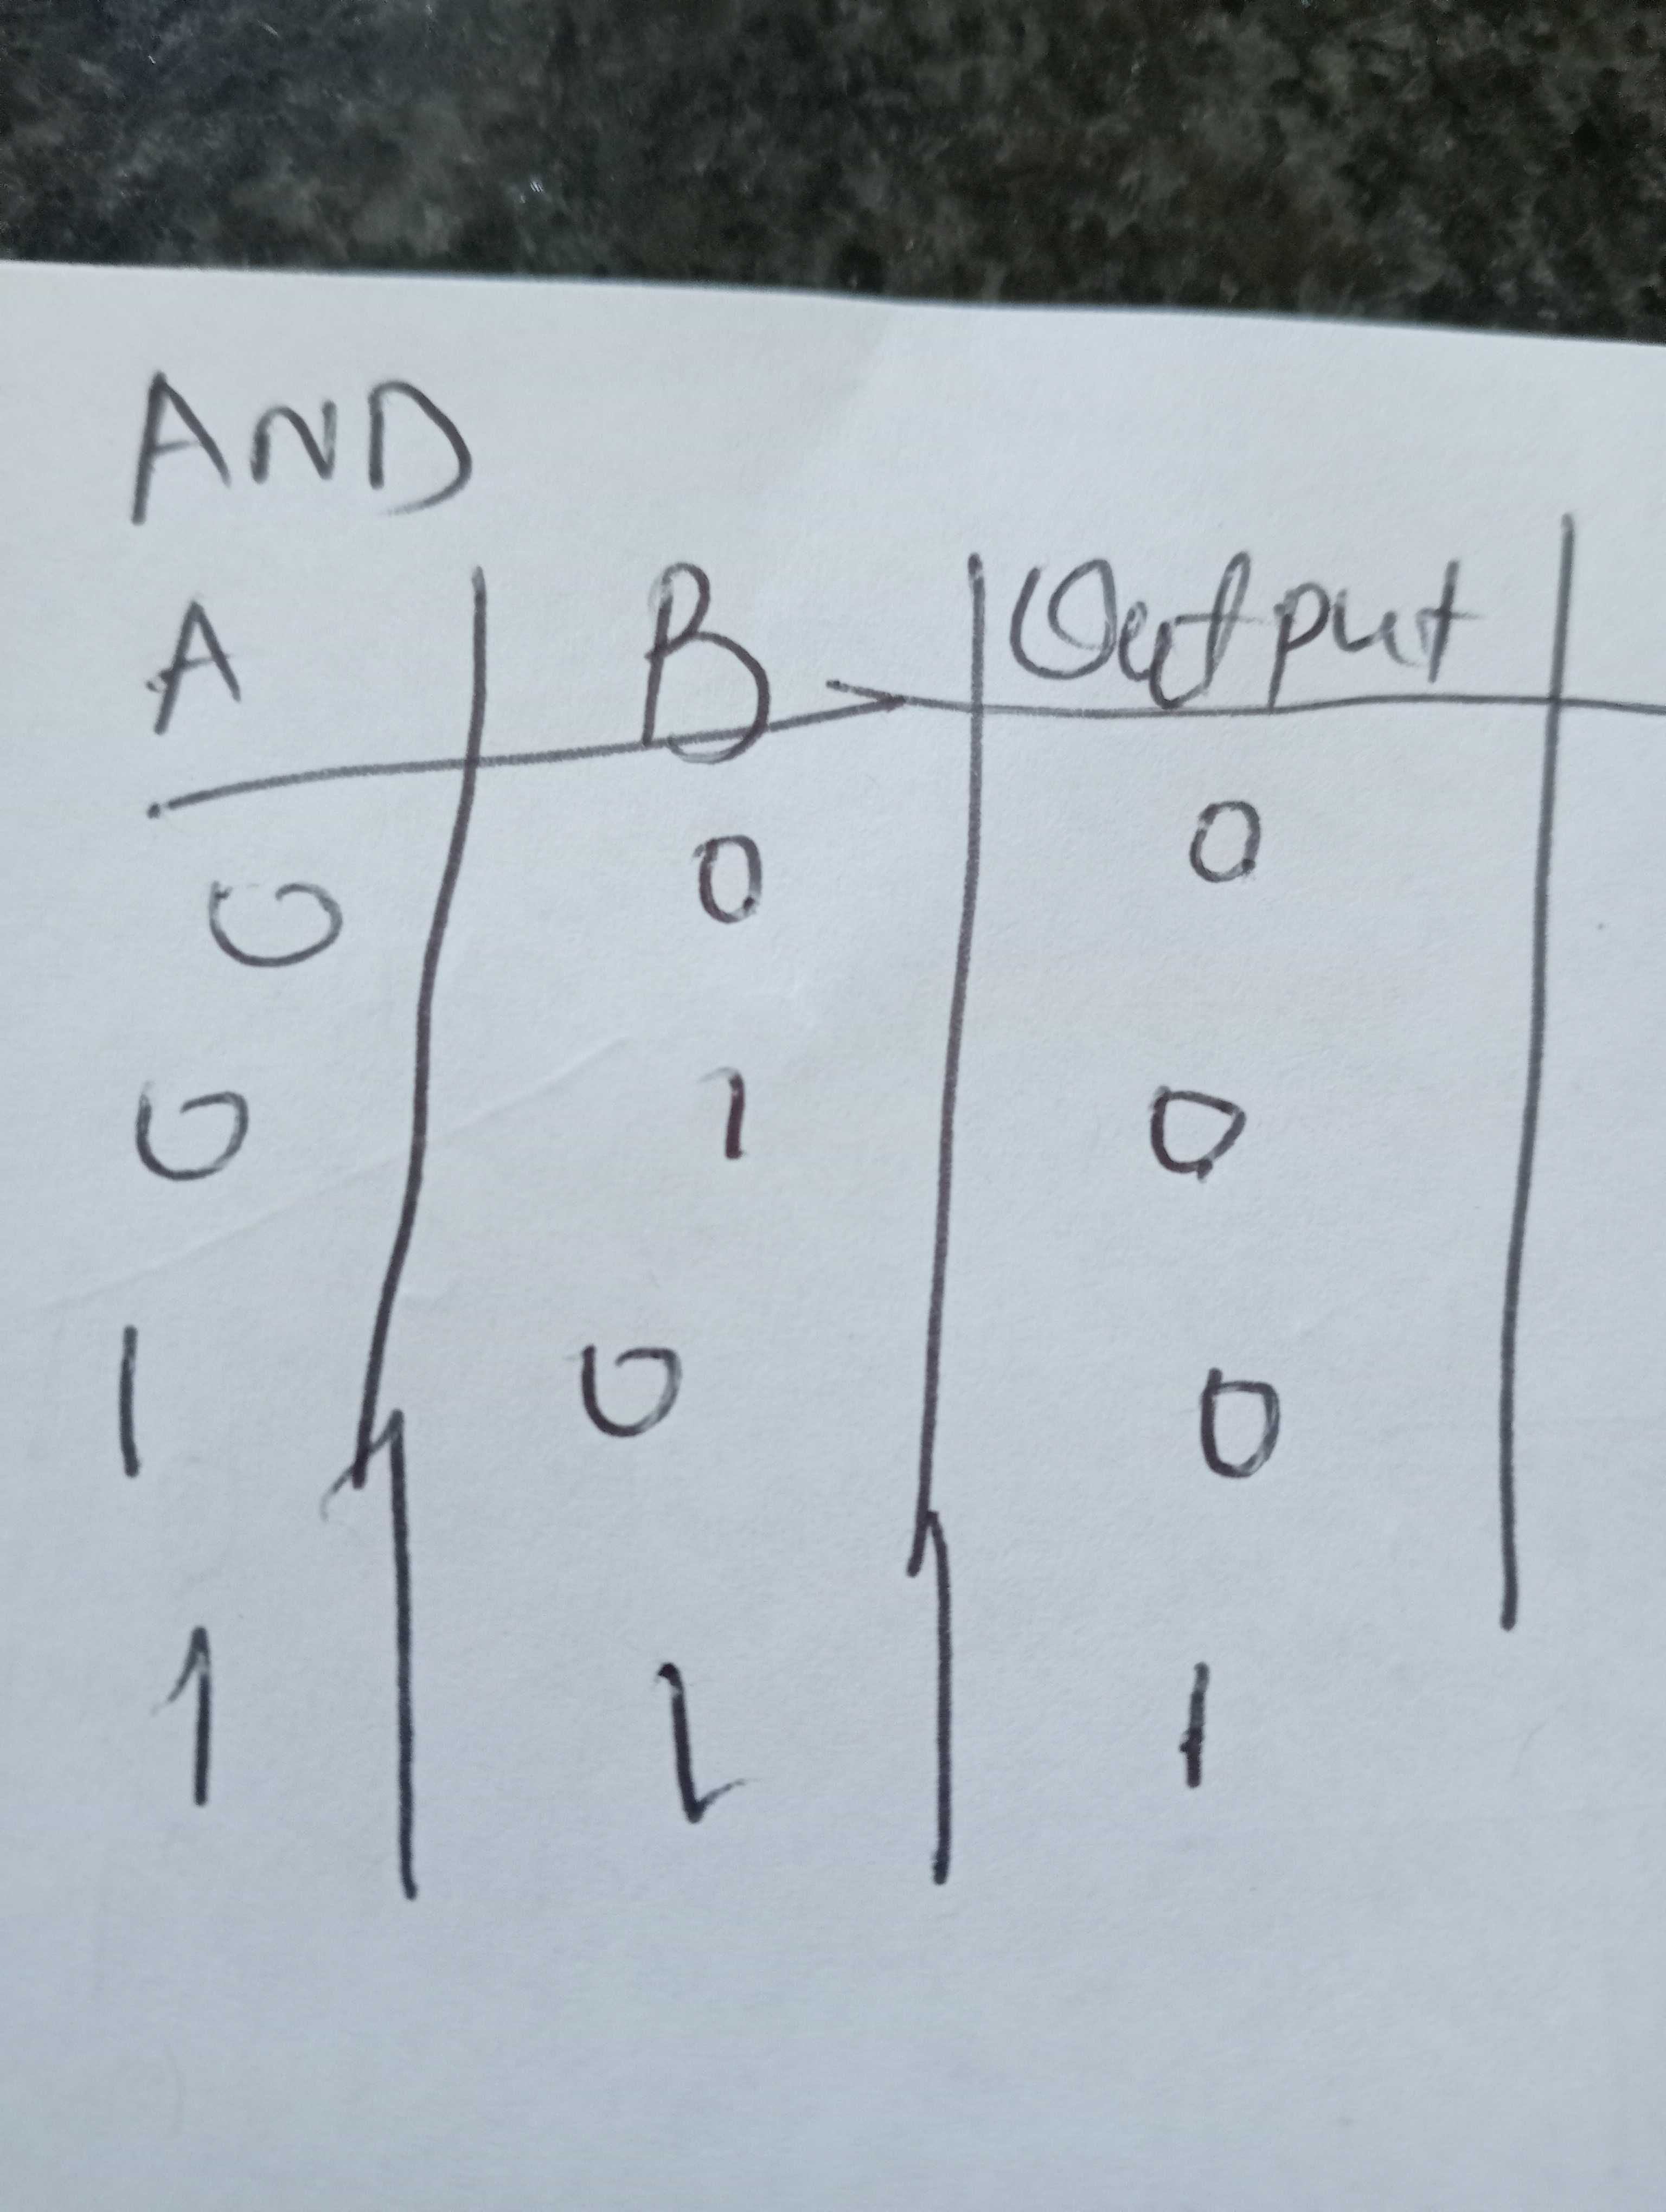 AND
A B Output
0 0 0
0 1 0
1 0 0
1 1 1